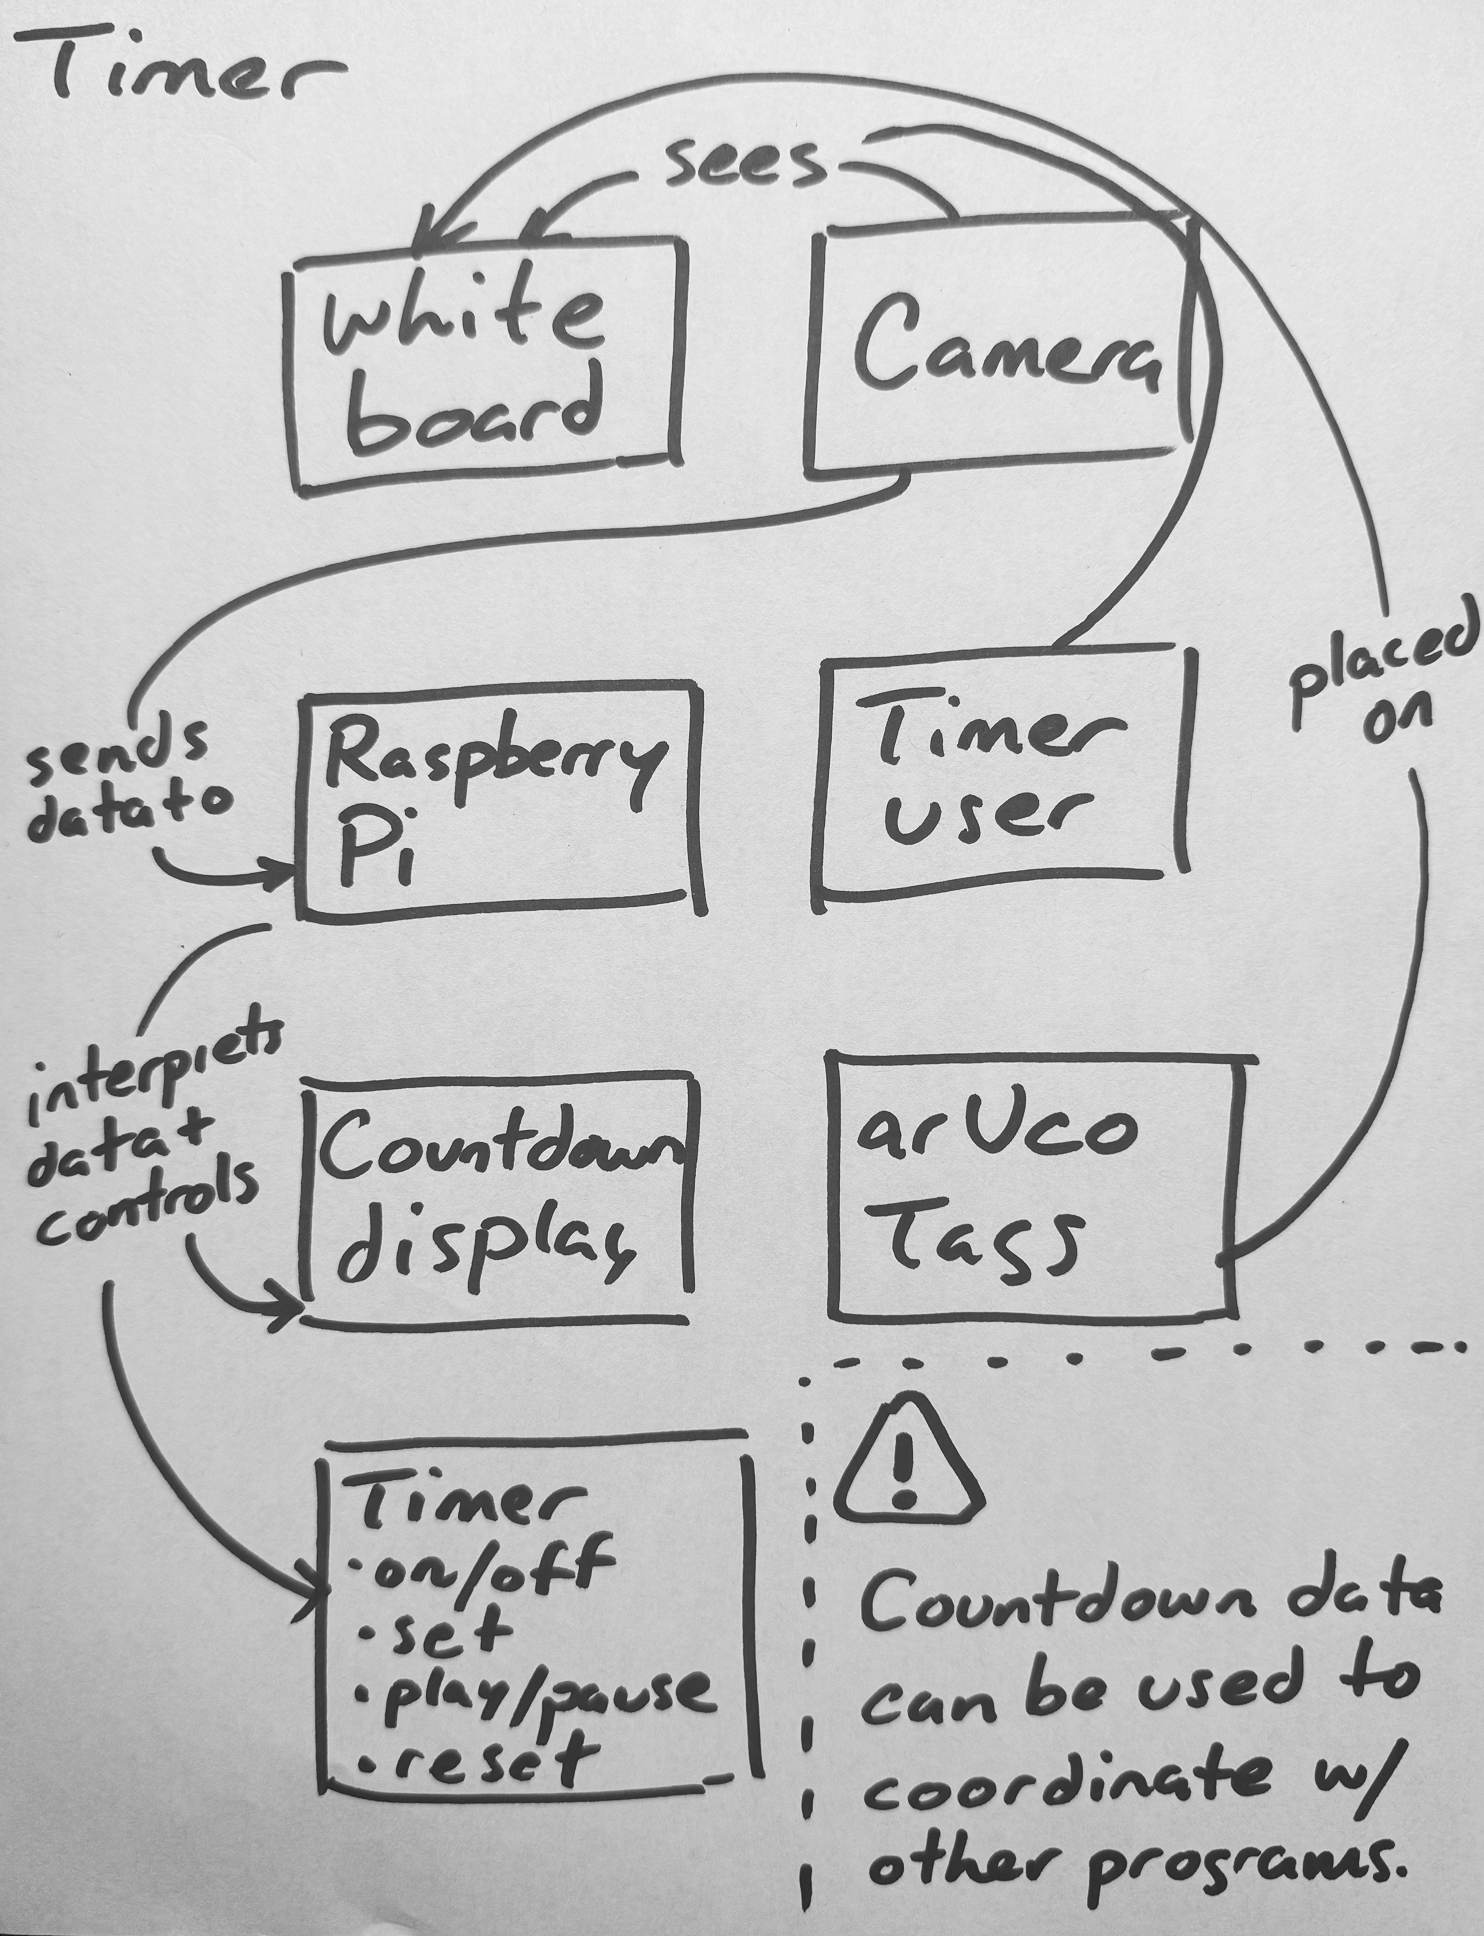 Timer
sees
white
board
Camera
sends
data to
Raspberry
Pi
Timer
user
placed
on
interprets
data +
controls
Countdown
display
arUco
Tags
Timer
• on/off
• set
• play/pause
• reset
!
Countdown data
can be used to
coordinate w/
other programs.